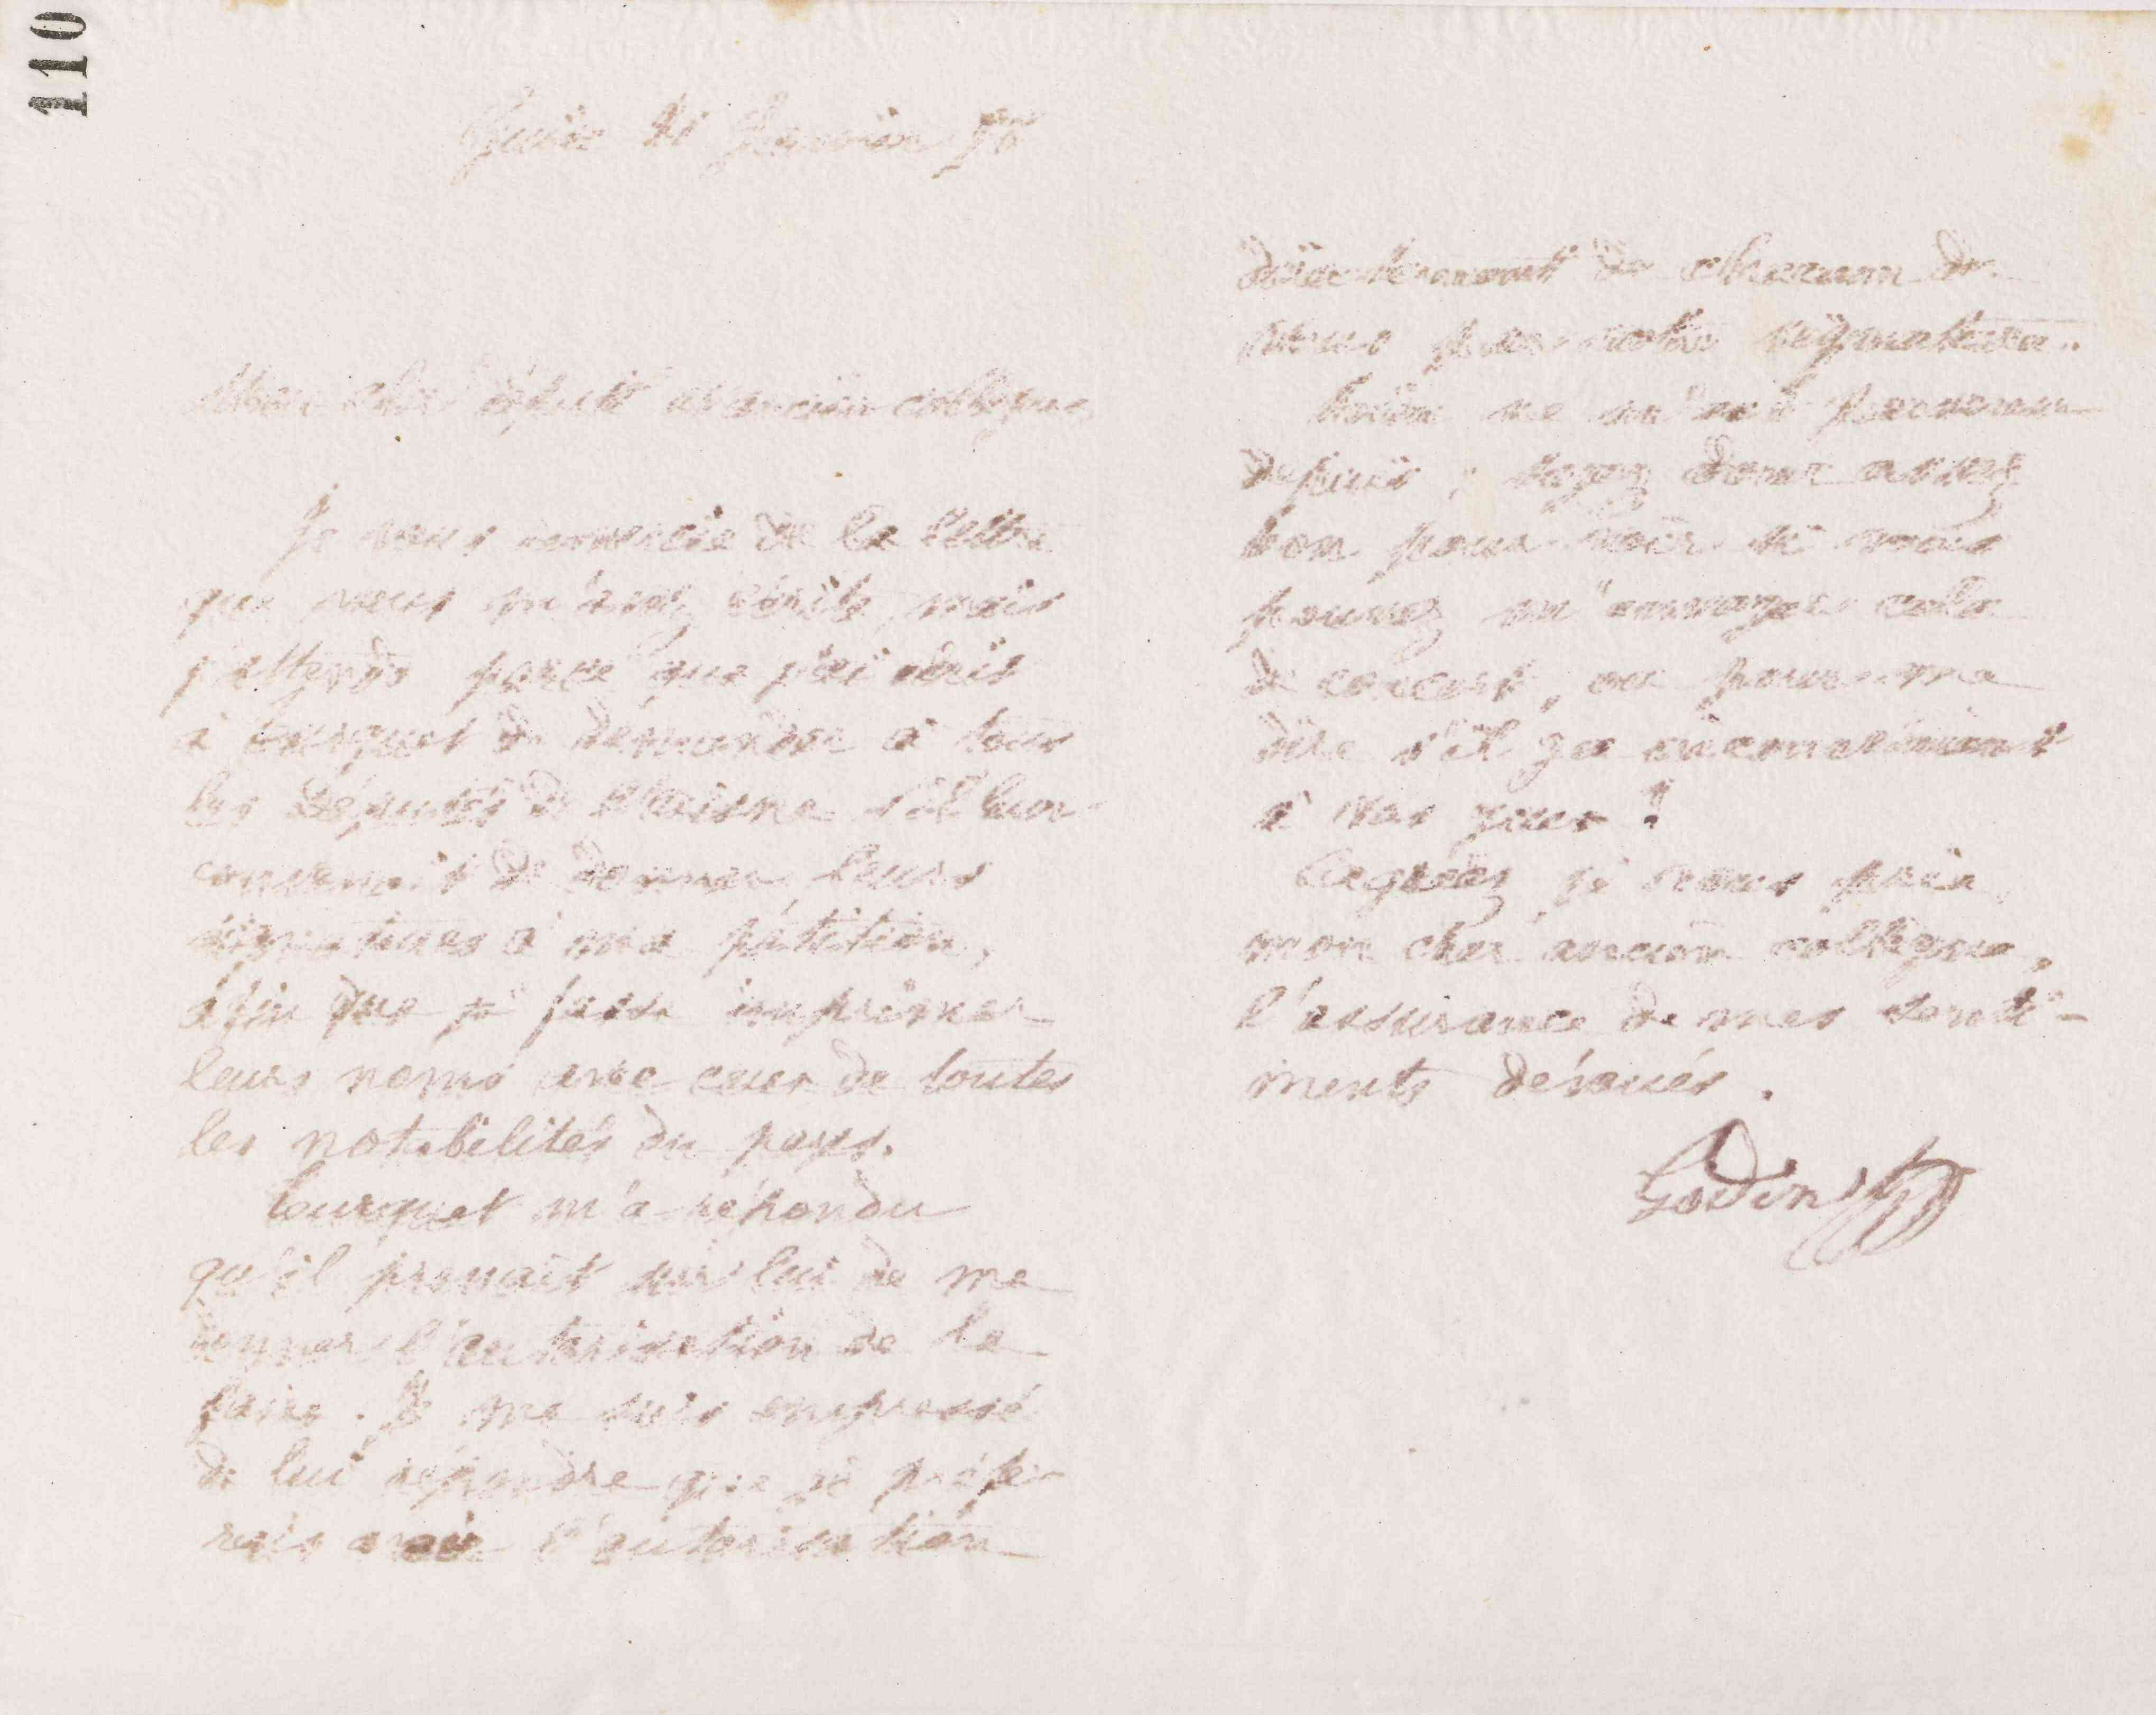 110
Guise Janvier
Mon cher député et ancien collègue
Je vous remercie de la lettre
que vous m'avez écrite, mais
j'attends parce que j'ai écrit
à Turquet de demander à tous
les députés de l'Aisne s'il leur
convenait de donner leurs
signatures à ma pétition,
afin que je fasse imprimer
leurs noms avec ceux de toutes
les notabilités du pays.
Turquet m'a répondu
qu'il prenait sur lui de me
donner l'autorisation de le
faire. Je me suis empressé
de lui répondre que je préfé-
rais avoir l'autorisation
directement de chacun de
vous par votre signature.
Rien ne m'est parvenu
depuis ; soyez donc assez
bon pour voir si vous
pouvez m'arranger cela
de concert, ou pour me
dire s'il y a inconvénient
à vos yeux ?
Agréez, je vous prie,
mon cher ancien collègue,
l'assurance de mes senti-
ments dévoués.
Godin